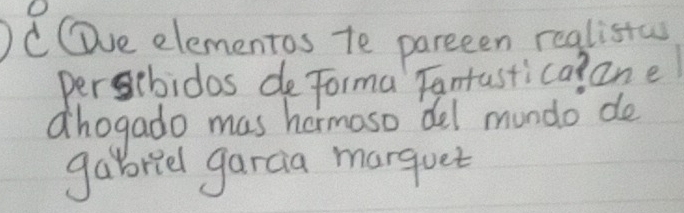 ¿Que elementos te pareeen realistas
persibidos de Forma Fantastica? an el
ahogado mas hermoso del mundo de
gabriel garcia marquez